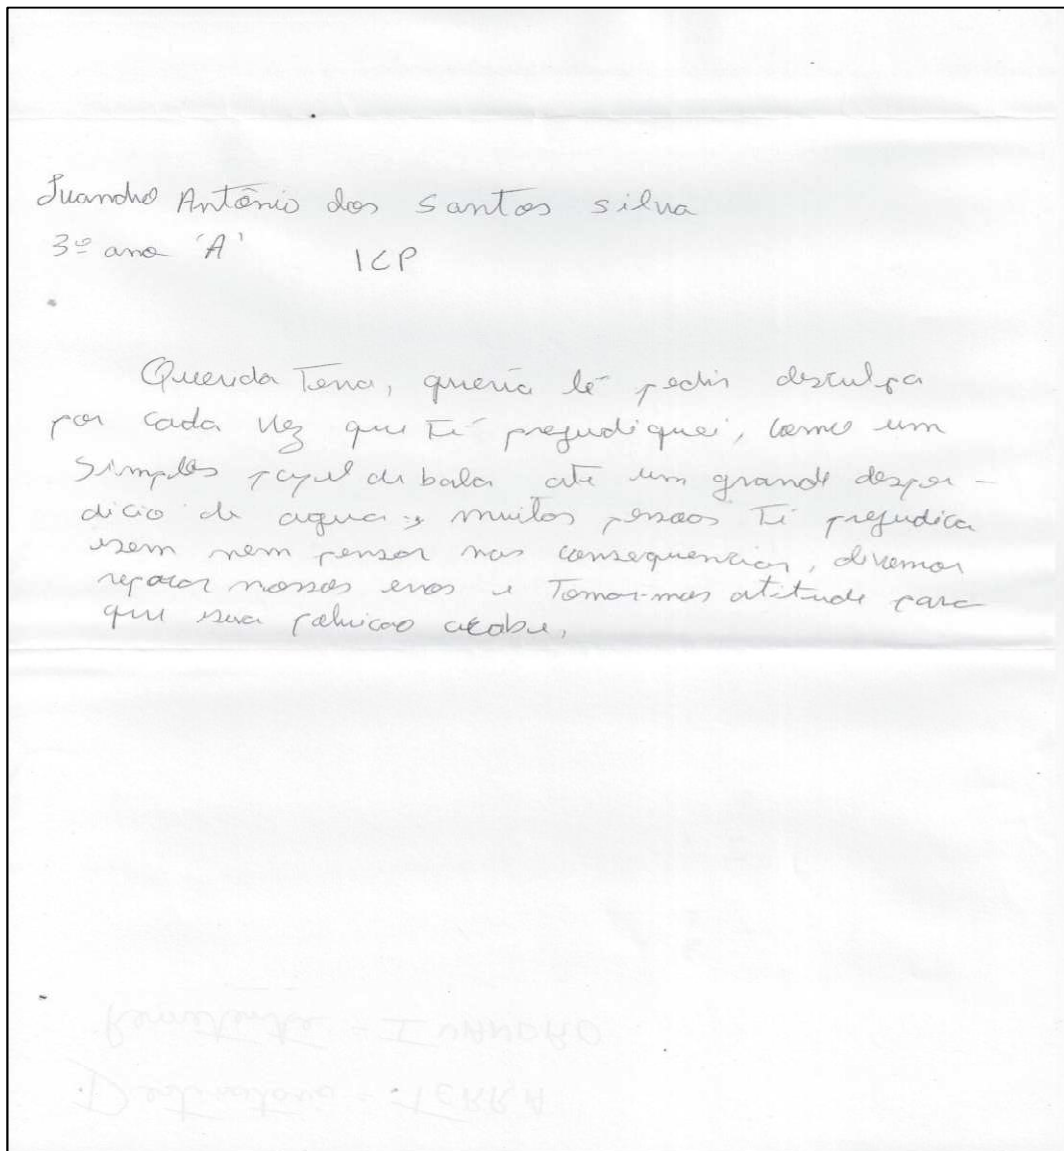 Ivandro Antônio dos Santos silva
3º ano 'A' ICP
Querida Terra, queria lê pedir desculpa
por cada vez que Ti prejudiquei, como um
simples papel de balas até um grande desper-
dicio de agua, muitos pessoas Ti prejudica
sem nem pensar nas consequencias, devemos
reparar nossos erros e Tomar-mos atitude para
que sua poluicao acabe.
Remetente = IVANDRO
Destinatario = TERRA